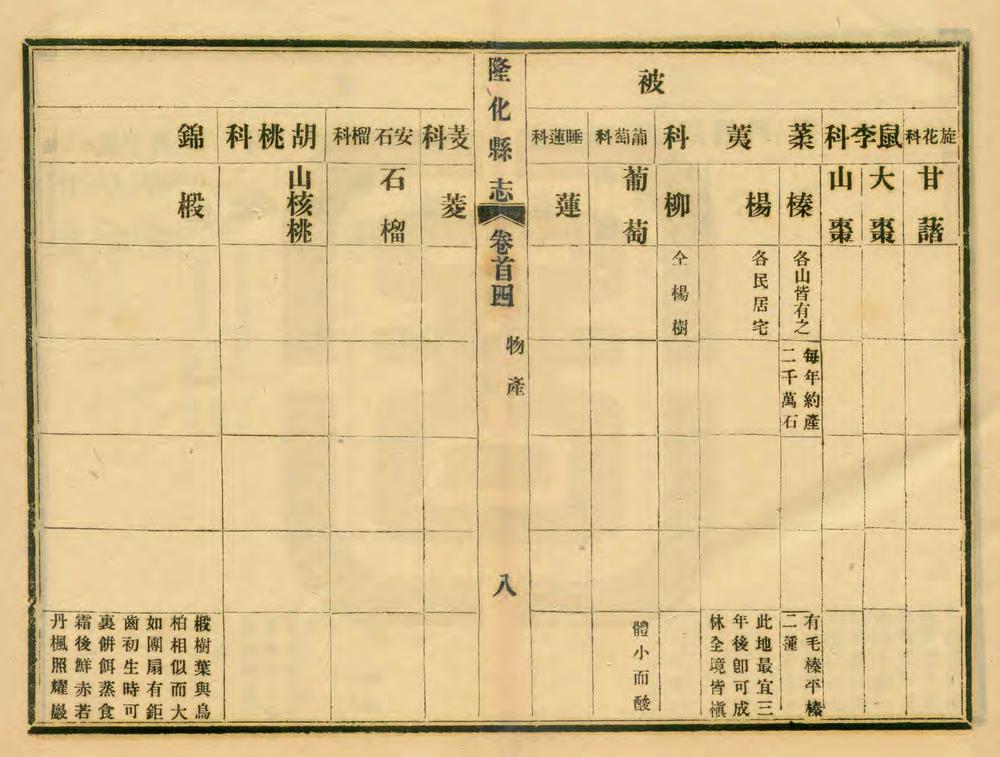 被
旋花科
甘藷
鼠李科
大棗
山棗
葇荑科
榛
各山皆有之
每年約產
二千萬石
有毛榛平榛
二種
楊
各民居宅
此地最宜三
年後卽可成
林全境皆慎
柳
仝楊樹
葡萄科
葡萄
體小而酸
睡蓮科
蓮
隆化縣志
卷首四
物產
八
芰科
菱
安石榴科
石榴
胡桃科
山核桃
錦
椵
椵樹葉與烏
桕相似而大
如團扇有鉅
齒初生時可
裹餅餌蒸食
霜後鮮赤若
丹楓照耀巖